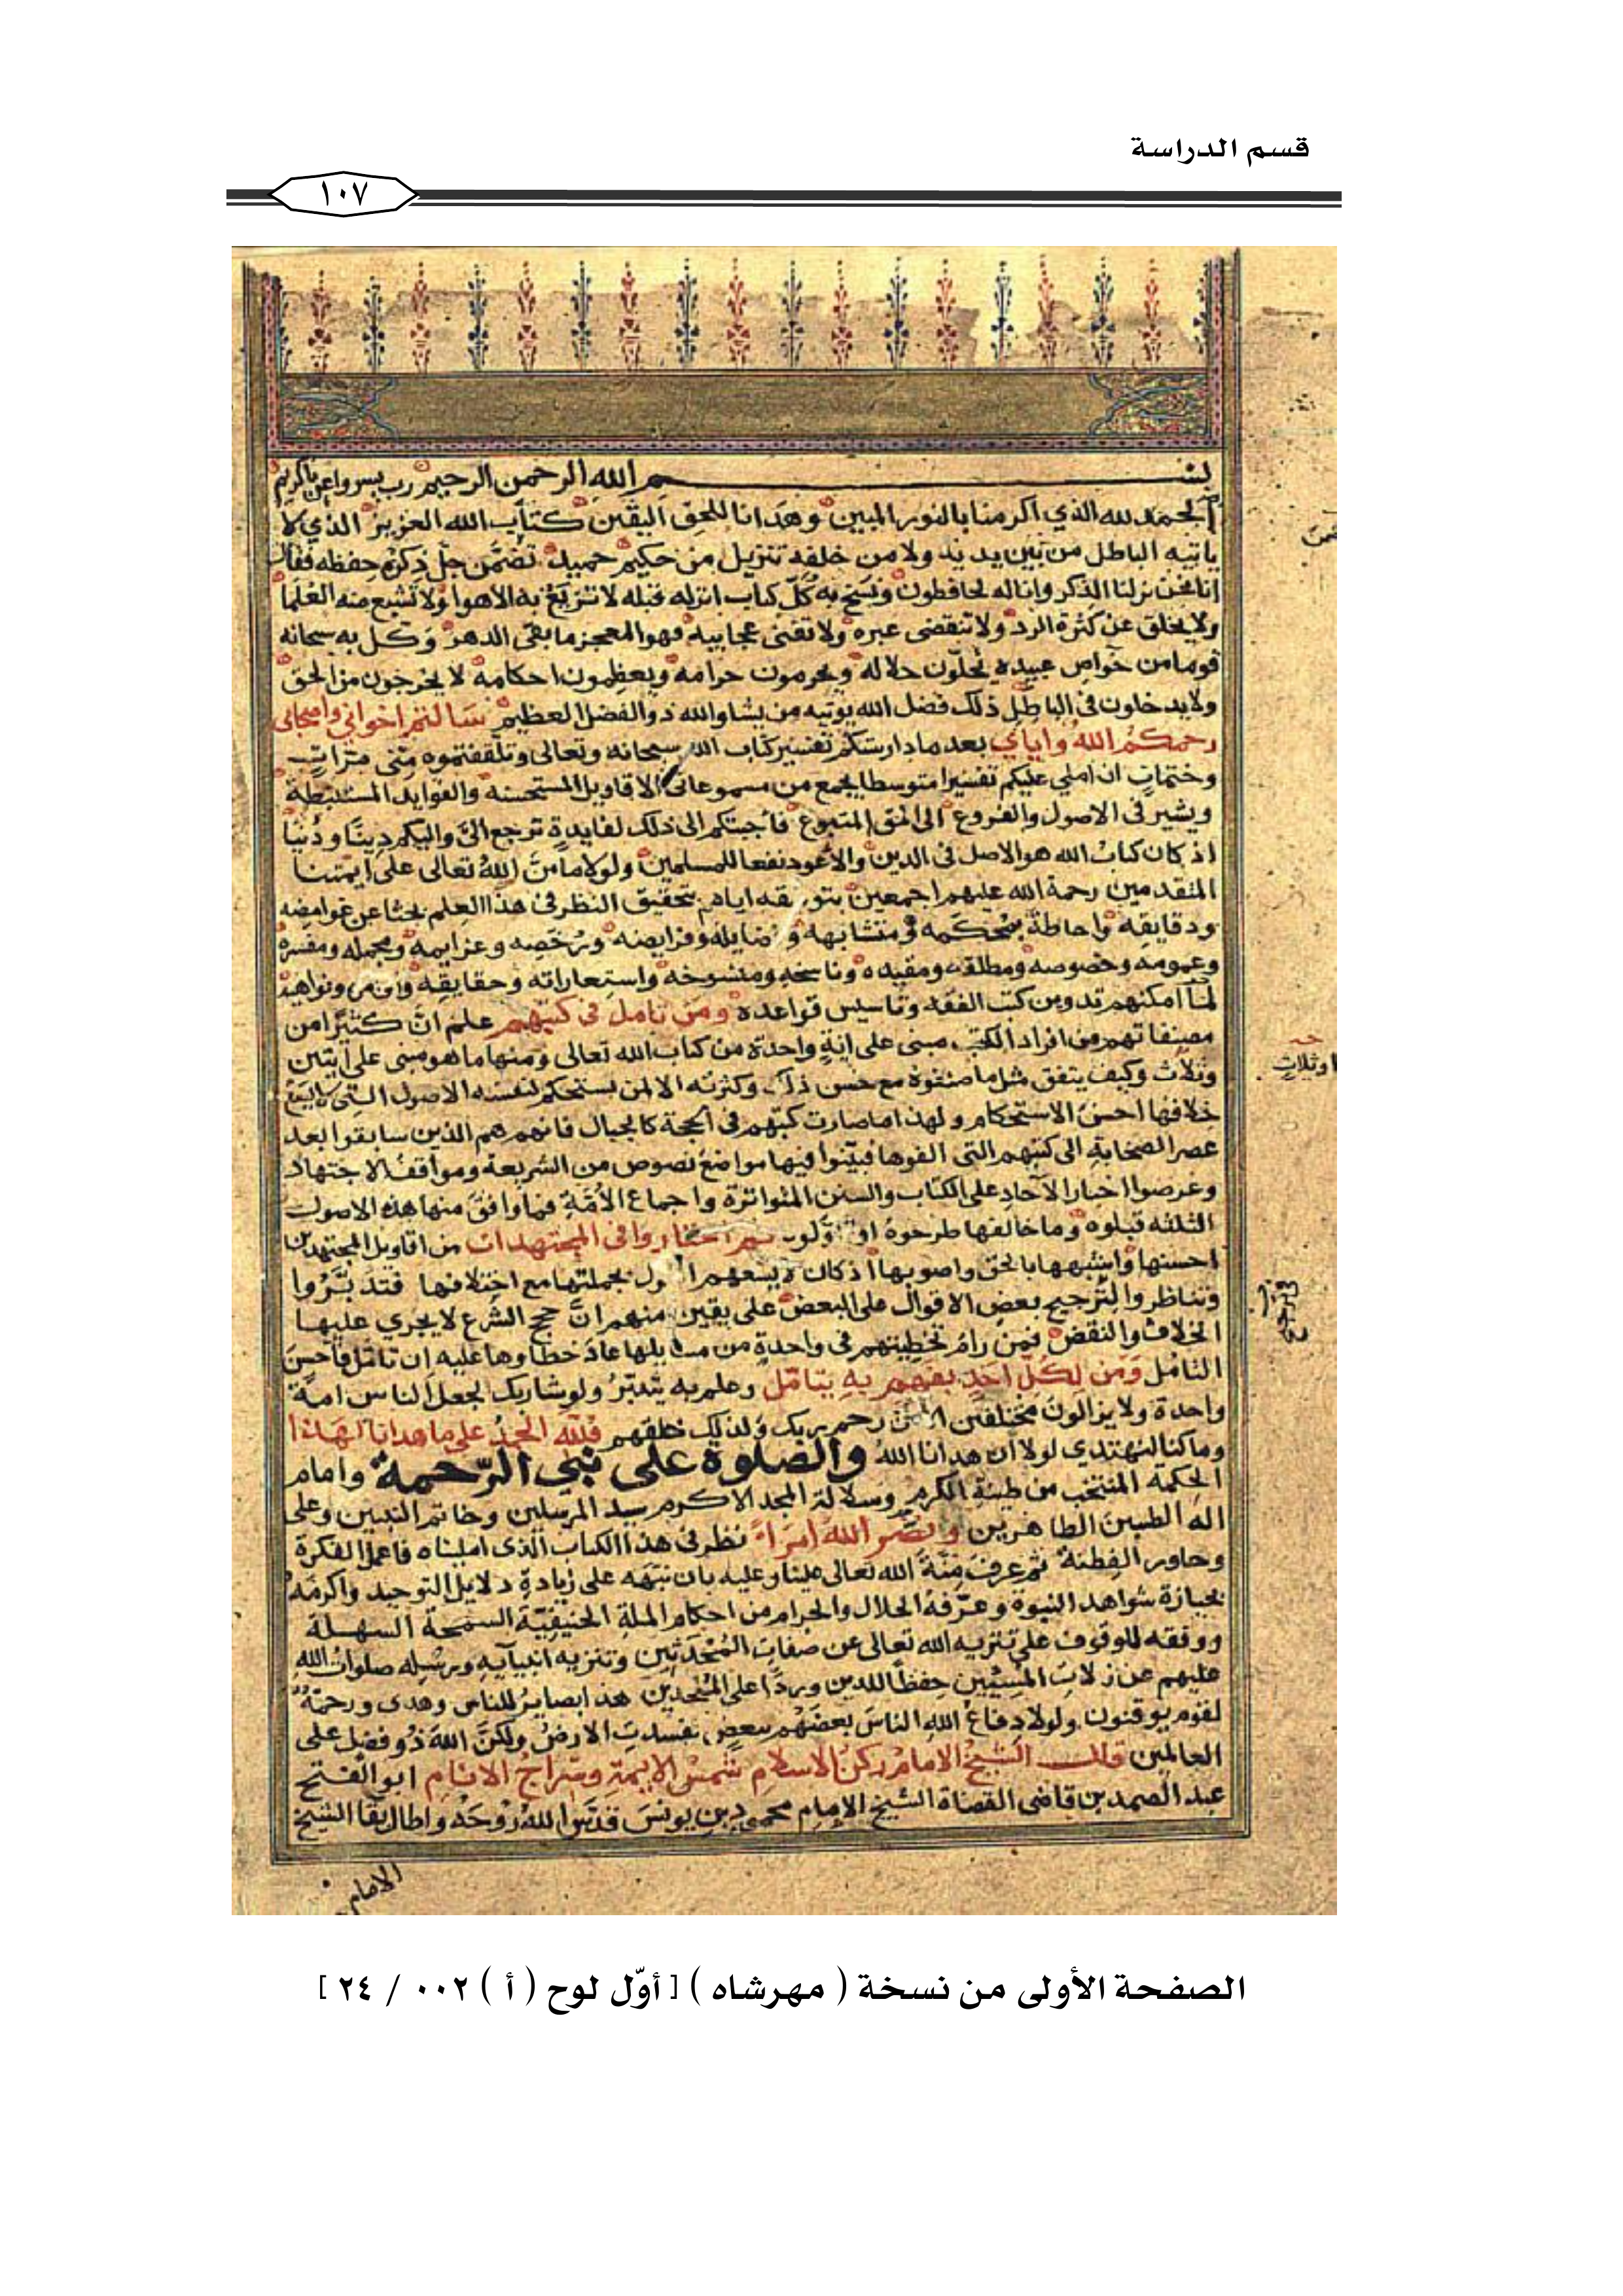 قسم الدراسة
١٠٧
بسم الله الرحمن الرحيم رب يسر واعن ياكريم
الحمد لله الذي اكرمنا بالنور المبين وهدانا للحق اليقين كتاب الله العزيز الذي لا
ياتيه الباطل من بين يديه ولا من خلفه تنزيل من حكيم حميد تضمن جل ذكره حفظه فقال
انا نحن نزلنا الذكر وانا له لحافظون ونسخ به كل كتاب انزله قبله لا تزيغ به الاهوا ولا تشبع منه العلما
ولا يخلق عن كثرة الرد ولا تنقضي عبره ولا تفنى عجايبه فهو المعجز ما بقى الدهر وكل به سبحانه
قوما من خواص عبيده يحلون حلاله ويحرمون حرامه ويعظمون احكامه لا يخرجون من الحق
ولا يدخلون في الباطل ذلك فضل الله يوتيه من يشا والله ذو الفضل العظيم سالتم اخواني واصحابي
رحمكم الله واياي بعد ما دارستكم تفسير كتاب الله سبحانه وتعالى وتلقفتموه مني مرات
وختمات ان املي عليكم تفسيرا متوسطا يجمع من مسموعاتي الاقاويل المستحسنة والفوايد المستنبطة
ويشير في الاصول والفروع الى الحق المتبوع فاجبتكم الى ذلك لفايدة ترجع الي واليكم دينا ودنيا
اذ كان كتاب الله هو الاصل في الدين والاعود نفعا للمسلمين ولولا ما من الله تعالى على ايمتنا
المتقدمين رحمة الله عليهم اجمعين بتوفيقه اياهم بتحقيق النظر في هذا العلم بحثا عن غوامضه
ودقايقه واحاطة بمحكمه ومتشابهه وفضايله وفرايضه ورخصه وعزايمه ومجمله ومفسره
وعمومه وخصوصه ومطلقه ومقيده وناسخه ومنسوخه واستعاراته وحقايقه واوامره ونواهيه
لما امكنهم تدوين كتب الفقه وتاسيس قواعده ومن تامل في كتبهم علم ان كثيرا من
مصنفاتهم من افراد الكتب مبنى على اية واحدة من كتاب الله تعالى ومنها ما هو مبنى على ايتين
وثلاث وكيف يتفق مثل ما صنفوه مع حسن ذلك وكثرته الا لمن يستحكم لنفسه الاصول التي لا يسع
خلافها احسن الاستحكام ولهذا ما صارت كتبهم في الحجة كالجبال فانهم هم الذين سابقوا بعد
عصر الصحابة الى كتبهم التي الفوها فبينوا فيها مواضع نصوص من الشريعة ومواقف الاجتهاد
وعرضوا اخبار الآحاد على الكتاب والسنن المتواترة واجماع الامة فما وافق منها هذه الاصول
الثلثه قبلوه وما خالفها طرحوه او اولوه ثم اختاروا في المجتهدات من اقاويل المجتهدين
احسنها واشبهها بالحق واصوبها اذ كان لا يسعهم القول بجملتها مع اختلافها فتدبروا
وتناظروا لترجيح بعض الاقوال على البعض على يقين منهم ان حجج الشرع لا يجري عليها
الخلاف والنقض فمن رام تخطيتهم في واحدة من مسايلها عاد خطاوها عليه ان تامل فاحسن
التامل ومن لكل احد بفهم به يتامل وعلم به يتدبر ولو شا ربك لجعل الناس امة
واحدة ولا يزالون مختلفين الا من رحم ربك ولذلك خلقهم فلله الحمد على ما هدانا لهذا
وما كنا لنهتدي لولا ان هدانا الله والصلوة على نبي الرحمة وامام
الحكمة المنتخب من طينة الكرم وسلالة المجد الاكرم سيد المرسلين وخاتم النبيين وعلى
اله الطيبين الطاهرين ونضر الله امرا نظر في هذا الكتاب الذي امليناه فاعمل الفكرة
وحاور الفطنة ثم عرف منة الله تعالى علينا وعليه بان نبهه على زيادة دلايل التوحيد واكرمه
بحيازة شواهد النبوة وعرفه الحلال والحرام من احكام الملة الحنيفية السمحة السهلة
ووفقه للوقوف على تنزيه الله تعالى عن صفات المحدثين وتنزيه انبيآيه ورسله صلوات الله
عليهم عن زلات المسيئين حفظا للدين وردا على الملحدين هذا بصاير للناس وهدى ورحمة
لقوم يوقنون ولولا دفاع الله الناس بعضهم ببعض لفسدت الارض ولكن الله ذو فضل على
العالمين قال الشيخ الامام ركن الاسلام شمس الايمة وسراج الانام ابو الفتح
عبد الصمد بن قاضي القضاة الشيخ الامام محمود بن يونس قدس الله روحه واطال بقا الشيخ
الامام
او ثلاث
الصفحة الأولى من نسخة ( مهرشاه ) [ أوّل لوح ( أ ) ٠٠٢ / ٢٤ ]